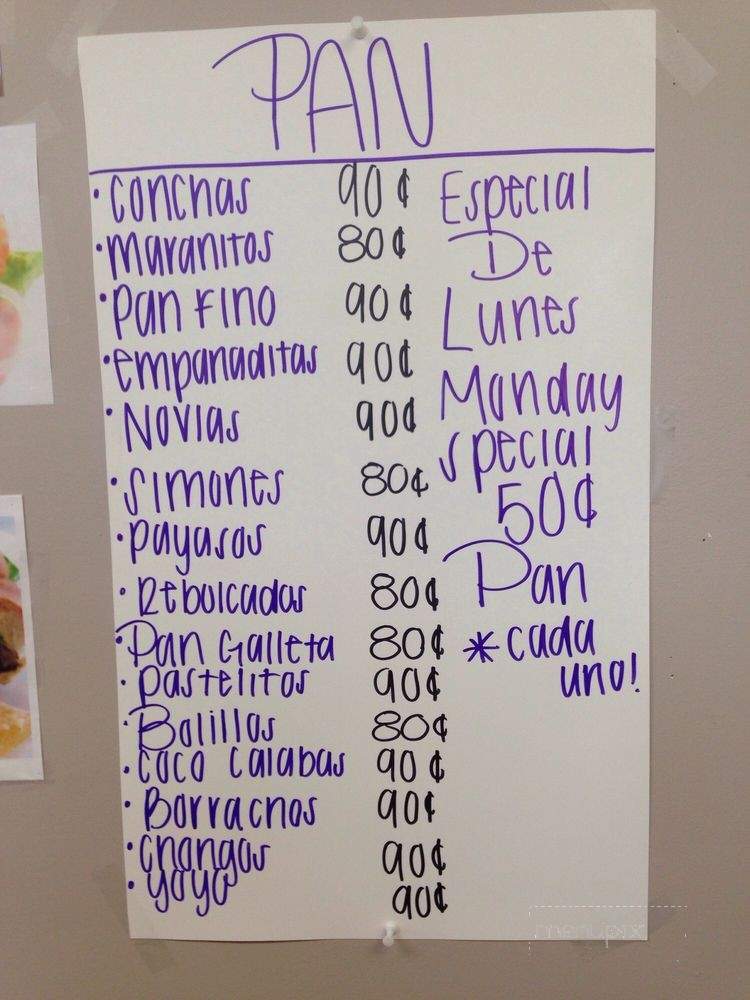 PAN
• Conchas 90¢
• Maranitos 80¢
• Pan Fino 90¢
• empanaditas 90¢
• Novias 90¢
• Simones 80¢
• Payasos 90¢
• Rebolcadas 80¢
• Pan Galleta 80¢
• Pastelitos 90¢
• Bolillos 80¢
• Coco Calabas 90¢
• Borrachos 90¢
• Changos 90¢
• yoyo 90¢
Especial
De
Lunes
Monday
Special
50¢
Pan
*cada
uno!
menupix